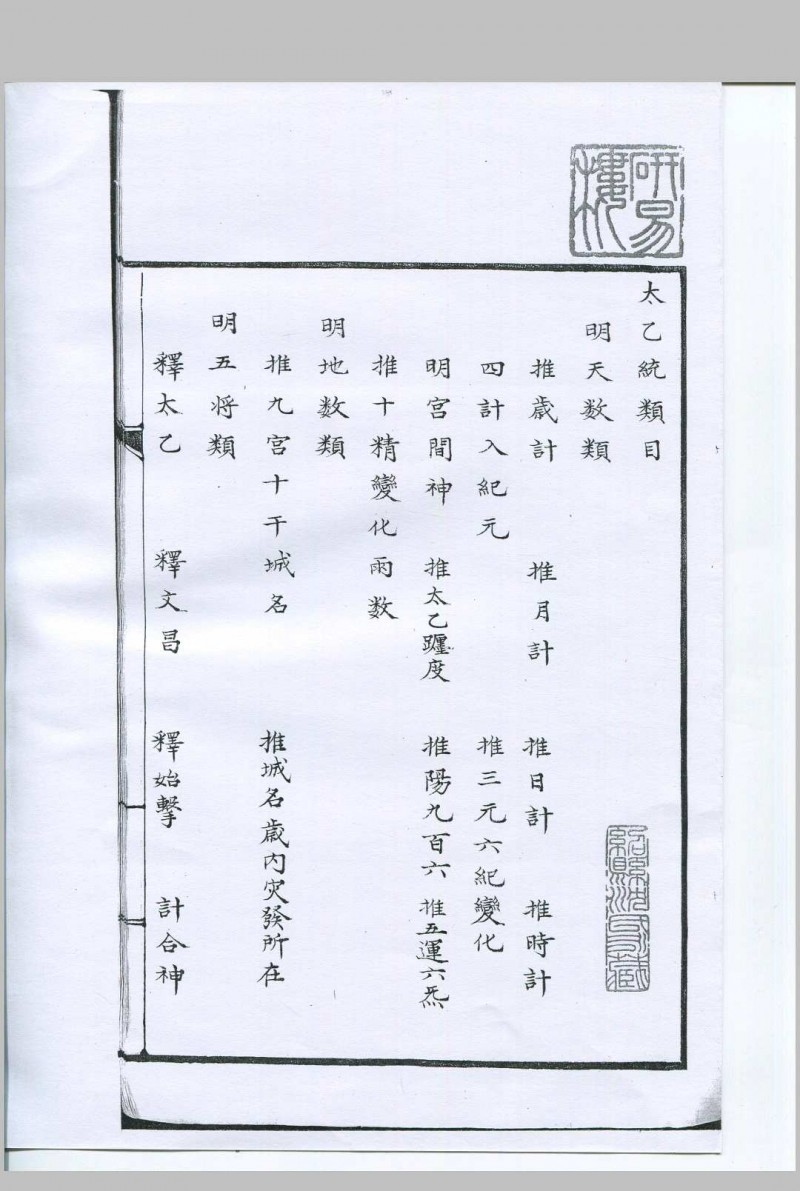 太乙統類目
明天数類
推歲計 推月計 推日計 推時計
四計入紀元 推三元六紀變化
明宮間神 推太乙躔度 推陽九百六 推五運六炁
推十精變化雨数
明地数類
推九宮十干城名 推城名歲內灾發所在
明五将類
釋太乙 釋文昌 釋始擊 計合神
研易樓